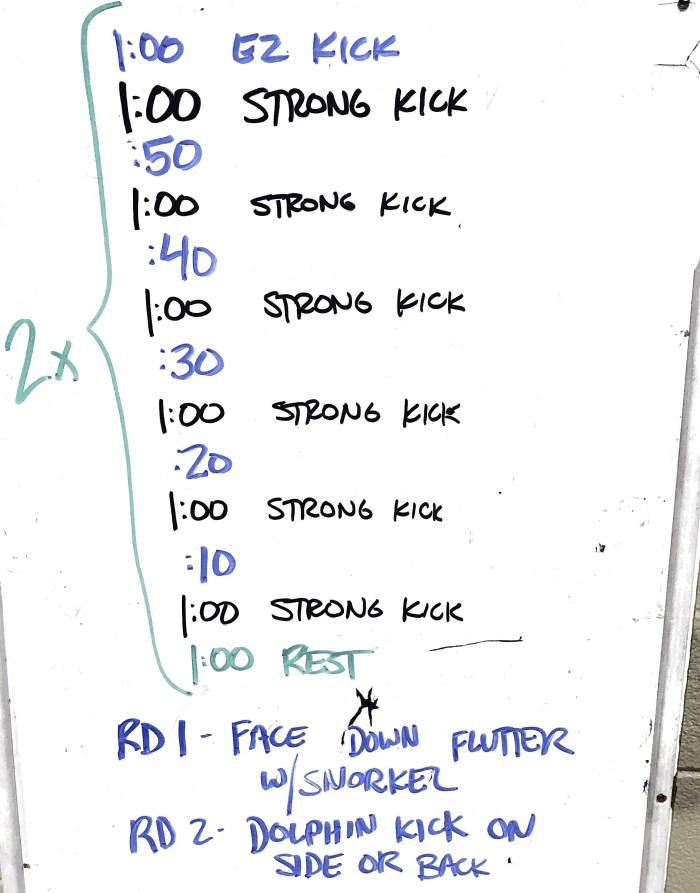 1:00 EZ KICK
1:00 STRONG KICK
:50
1:00 STRONG KICK
:40
1:00 STRONG KICK
2x
:30
1:00 STRONG KICK
:20
1:00 STRONG KICK
:10
1:00 STRONG KICK
1:00 REST
RD 1 - FACE DOWN FLUTTER
W/SNORKEL
RD 2 - DOLPHIN KICK ON
SIDE OR BACK